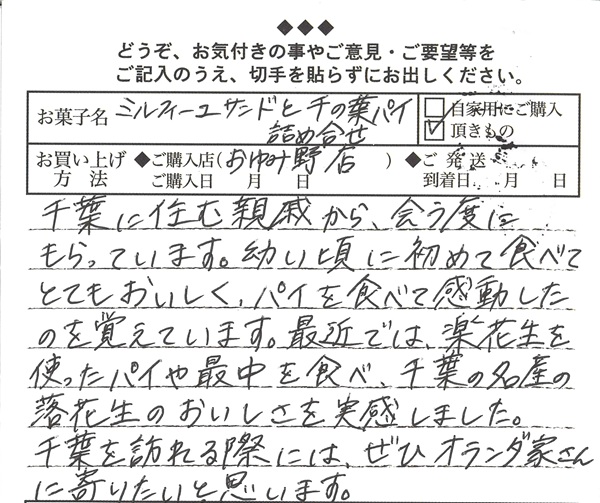 ◆◆◆
どうぞ、お気付きの事やご意見・ご要望等を
ご記入のうえ、切手を貼らずにお出しください。
お菓子名 ミルフィーユサンドと千の葉パイ 詰め合せ
□ 自家用にご購入
☑ 頂きもの
お買い上げ方法 ◆ご購入店(おゆみ野店)
ご購入日 月 日
◆ご発送
到着日 月 日
千葉に住む親戚から、会う度に
もらっています。幼い頃に初めて食べて
とてもおいしく、パイを食べて感動した
のを覚えています。最近では、楽花生を
使ったパイや最中を食べ、千葉の名産の
落花生のおいしさを実感しました。
千葉を訪れる際には、ぜひオランダ家さん
に寄りたいと思います。